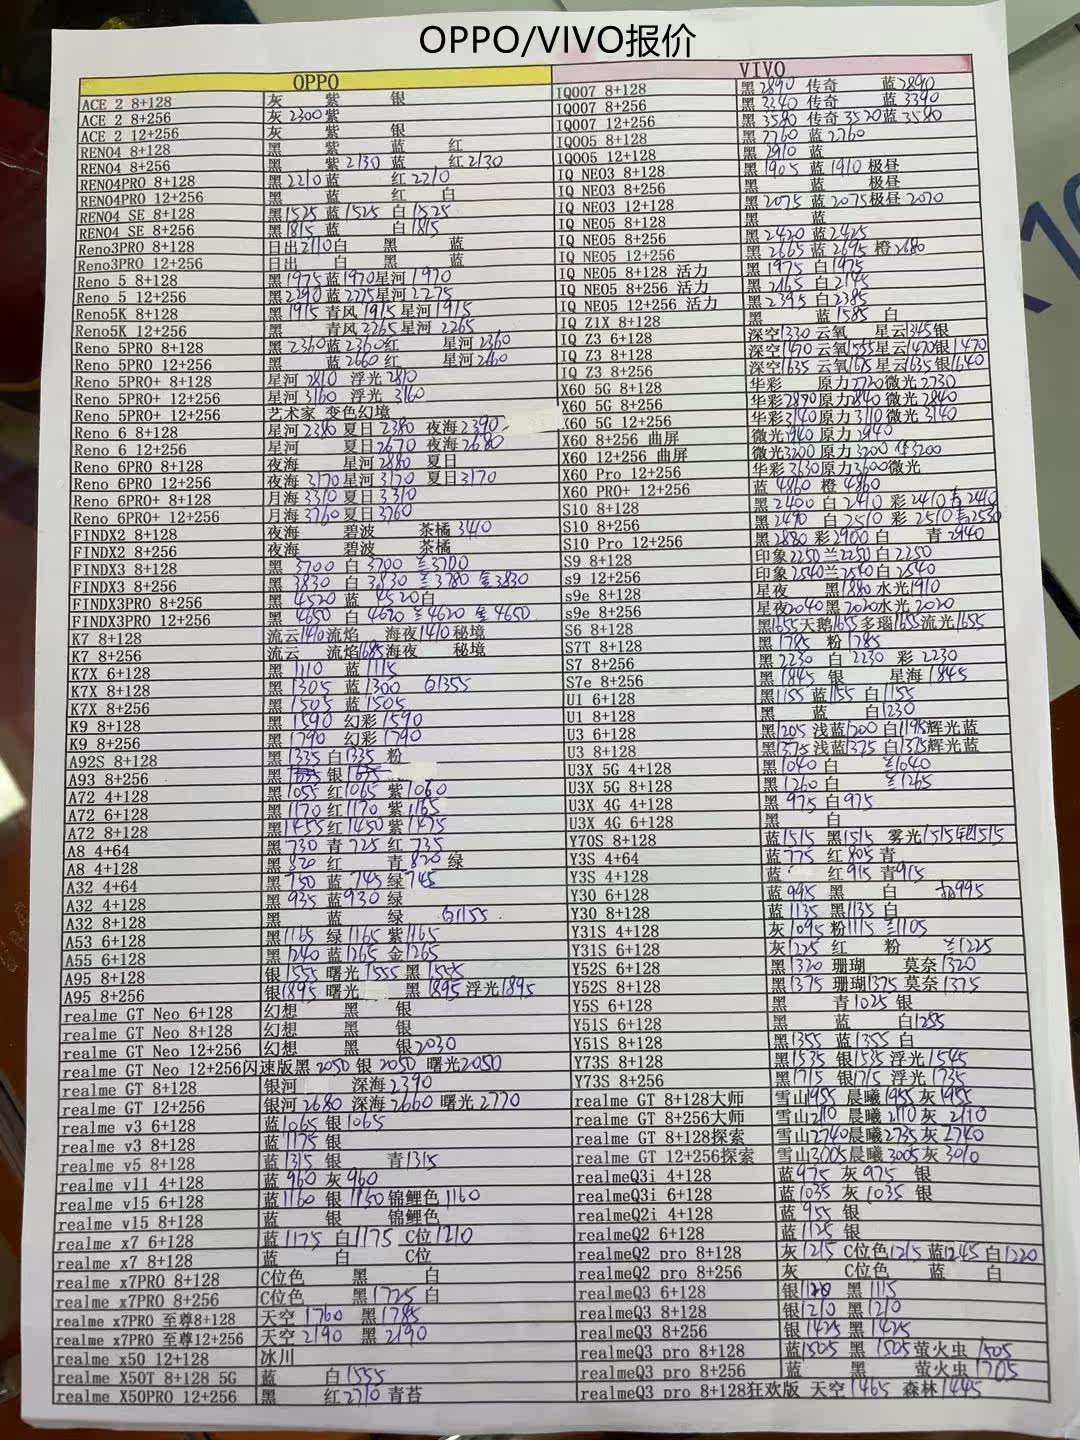 OPPO/VIVO报价
OPPO
ACE 2 8+128 灰 紫 银
ACE 2 8+256 灰2300紫
ACE 2 12+256 灰 紫 银
RENO4 8+128 黑 紫 蓝 红
RENO4 8+256 黑 紫2130 蓝 红2130
RENO4PRO 8+128 黑2210蓝 红2210
RENO4PRO 12+256 黑 蓝 红 白
RENO4 SE 8+128 黑1525蓝1525 白1525
RENO4 SE 8+256 黑1815 蓝 白1815
Reno3PRO 8+128 日出2110白 黑 蓝
Reno3PRO 12+256 日出 白 黑 蓝
Reno 5 8+128 黑1975蓝1970星河1970
Reno 5 12+256 黑2290蓝2275星河2275
Reno5K 8+128 黑1915 青风1915星河1915
Reno5K 12+256 黑 青风2265星河2265
Reno 5PRO 8+128 黑2360蓝2360红 星河2360
Reno 5PRO 12+256 黑 蓝2660红 星河2660
Reno 5PRO+ 8+128 星河2810 浮光2810
Reno 5PRO+ 12+256 星河3160 浮光3160
Reno 5PRO+ 12+256 艺术家 变色幻境
Reno 6 8+128 星河2380夏日2380 夜海2390
Reno 6 12+256 星河 夏日2670 夜海2680
Reno 6PRO 8+128 夜海 星河2880 夏日
Reno 6PRO 12+256 夜海3170星河3170 夏日3170
Reno 6PRO+ 8+128 月海3310夏日3310
Reno 6PRO+ 12+256 月海3760夏日3760
FINDX2 8+128 夜海 碧波 茶橘3410
FINDX2 8+256 夜海 碧波 茶橘
FINDX3 8+128 黑3700 白3700 兰3700
FINDX3 8+256 黑3830 白3830 兰3780
FINDX3PRO 8+256 黑4520 蓝4520白
FINDX3PRO 12+256 黑4650 白4620 兰4620
K7 8+128 流云1410流焰 海夜1410秘境
K7 8+256 流云 流焰1685海夜 秘境
K7X 6+128 黑1110 蓝1115
K7X 8+128 黑1305 蓝1300 白1355
K7X 8+256 黑1505 蓝1505
K9 8+128 黑1590 幻彩1590
K9 8+256 黑1790 幻彩1790
A92S 8+128 黑1335白1335 粉
A93 8+256 黑 银
A72 4+128 黑1055红1065紫1060
A72 6+128 黑1170红1170紫1165
A72 8+128 黑1455红1450紫1475
A8 4+64 黑730 青725红735
A8 4+128 黑820 红 青820绿
A32 4+64 黑750 蓝745绿745
A32 4+128 黑935 蓝930 绿
A32 8+128 黑 蓝 绿 白1155
A53 6+128 黑1165 绿1165紫1165
A55 6+128 黑1240蓝1265金1265
A95 8+128 银1555 曙光1555黑1555
A95 8+256 银1895 曙光 黑1895浮光1895
realme GT Neo 6+128 幻想 黑 银
realme GT Neo 8+128 幻想 黑 银
realme GT Neo 12+256 幻想 黑 银2030
realme GT Neo 12+256闪速版黑2050 银2050 曙光2050
realme GT 8+128 银河 深海2390
realme GT 12+256 银河2680 深海2660 曙光2770
realme v3 6+128 蓝1065银1065
realme v3 8+128 蓝1175银
realme v5 8+128 蓝1315 银 青1315
realme v11 4+128 蓝960灰960
realme v15 6+128 蓝1160 银1150锦鲤色1160
realme v15 8+128 蓝 银 锦鲤色
realme x7 6+128 蓝1175 白1175 C位1210
realme x7 8+128 蓝 白 C位
realme x7PRO 8+128 C位色 黑 白
realme x7PRO 8+256 C位色 黑1725白
realme x7PRO 至尊8+128 天空1760 黑1785
realme x7PRO 至尊12+256 天空2190 黑2190
realme x50 12+128 冰川
realme X50T 8+128 5G 蓝 白1555
realme X50PRO 12+256 黑 红2710青苔
VIVO
IQOO7 8+128 黑2890 传奇 蓝2890
IQOO7 8+256 黑3340 传奇 蓝3390
IQOO7 12+256 黑3580 传奇3520蓝3580
IQOO5 8+128 黑2760 蓝2760
IQOO5 12+128 黑2910 蓝
IQ NEO3 8+128 黑1905 蓝1910极昼
IQ NEO3 8+256 黑 蓝 极昼
IQ NEO3 12+128 黑2075 蓝2075极昼2070
IQ NEO5 8+128 黑 蓝
IQ NEO5 8+256 黑2420蓝2425
IQ NEO5 12+256 黑2665蓝2695橙2680
IQ NEO5 8+128 活力 黑1975 白1975
IQ NEO5 8+256 活力 黑2165白2145
IQ NEO5 12+256 活力 黑2395白2385
IQ Z1X 8+128 黑 蓝1585 白
IQ Z3 6+128 深空1330云氧 星云1345银
IQ Z3 8+128 深空1470云氧1555星云1470银1470
IQ Z3 8+256 深空1635云氧1675星云1635银1640
X60 5G 8+128 华彩 原力2720微光2730
X60 5G 8+256 华彩2890原力2840微光2840
X60 5G 12+256 华彩3140原力3110微光3140
X60 8+256 曲屏 微光2940原力2940
X60 12+256 曲屏 微光3200原力3200 华3200
X60 Pro 12+256 华彩3630原力3600微光
X60 PRO+ 12+256 蓝4860 橙4860
S10 8+128 黑2400白2410彩2410青2410
S10 8+256 黑2490 白2510彩2510青2530
S10 Pro 12+256 黑2880彩2900白 青2940
S9 8+128 印象2250兰2250白2250
s9 12+256 印象2540兰2540白2540
s9e 8+128 星夜 黑1880水光1910
s9e 8+256 星夜2040黑2020水光2020
S6 8+128 黑1655天鹅1655多瑙1655流光1655
S7T 8+128 黑1785 粉1785
S7 8+256 黑2230 白2230 彩2230
S7e 8+256 黑1845 银 星海1845
U1 6+128 黑1155蓝1155 白1155
U1 8+128 黑 蓝 白1230
U3 6+128 黑1205浅蓝1200白1195辉光蓝
U3 8+128 黑1375浅蓝1375白1375辉光蓝
U3X 5G 4+128 黑1040白 兰1040
U3X 5G 8+128 黑1260白 兰1265
U3X 4G 4+128 黑975白975
U3X 4G 6+128 黑 白
Y70S 8+128 蓝1515 黑1515 雾光1515银1515
Y3S 4+64 蓝775 红805青
Y3S 4+128 蓝 红915青915
Y30 6+128 蓝995 黑 白
Y30 8+128 蓝1135黑1135白
Y31S 4+128 灰1095粉1115 兰1105
Y31S 6+128 灰1225红 粉 兰1225
Y52S 6+128 黑1320 珊瑚 莫奈1320
Y52S 8+128 黑1375 珊瑚1375莫奈1375
Y5S 6+128 黑 青1025银
Y51S 6+128 黑 蓝 白1255
Y51S 8+128 黑1355 蓝1355白
Y73S 8+128 黑1535 银1535浮光1545
Y73S 8+256 黑1715 银1715 浮光1735
realme GT 8+128大师 雪山1955晨曦1955灰1955
realme GT 8+256大师 雪山2110 晨曦2110灰2110
realme GT 8+128探索 雪山2740晨曦2735灰2740
realme GT 12+256探索 雪山3005晨曦3005灰3010
realmeQ3i 4+128 蓝975 灰975 银
realmeQ3i 6+128 蓝1035 灰1035 银
realmeQ2i 4+128 蓝955银
realmeQ2 6+128 蓝1125银
realmeQ2 pro 8+128 灰1215 C位色1215蓝1245白1220
realmeQ2 pro 8+256 灰 C位色 蓝 白
realmeQ3 6+128 银1120 黑1115
realmeQ3 8+128 银1210 黑1210
realmeQ3 8+256 银1425 黑1425
realmeQ3 pro 8+128 蓝1505 黑1505萤火虫1505
realmeQ3 pro 8+256 蓝 黑 萤火虫1705
realmeQ3 pro 8+128狂欢版 天空1465 森林1445